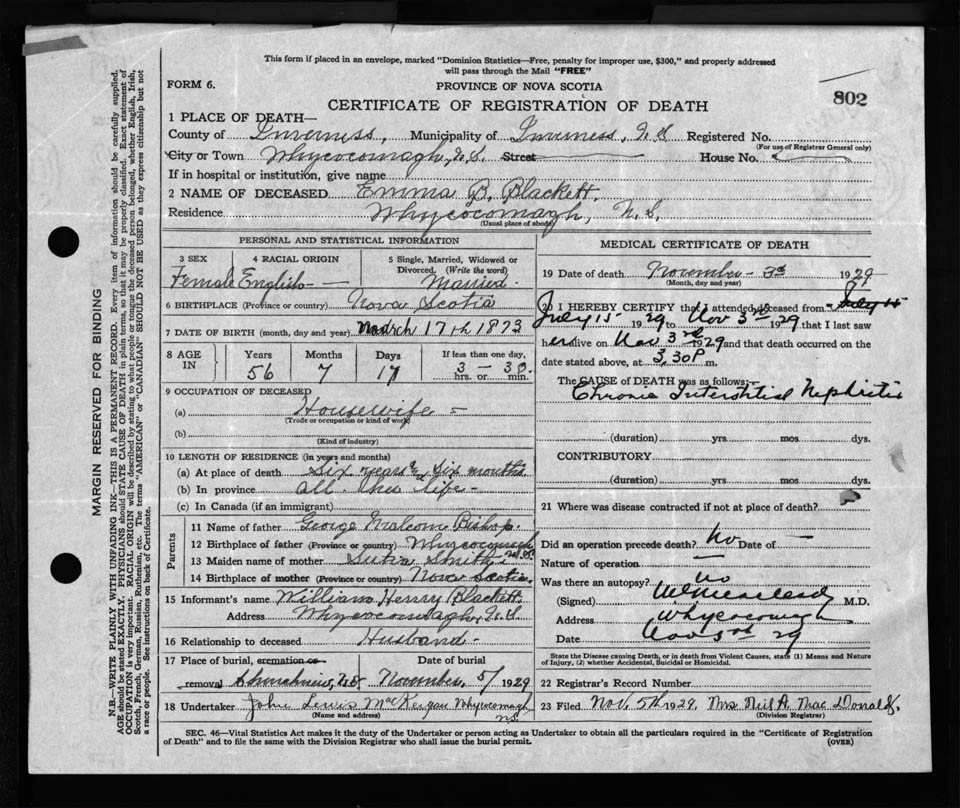 This form if placed in an envelope, marked "Dominion Statistics—Free, penalty for improper use, $300," and properly addressed
will pass through the Mail "FREE"
FORM 6.
PROVINCE OF NOVA SCOTIA
802
CERTIFICATE OF REGISTRATION OF DEATH
1 PLACE OF DEATH—
County of Inverness, Municipality of Inverness, N.S Registered No.
(For use of Registrar General only)
City or Town Whycocomagh, N.S. Street House No.
If in hospital or institution, give name
2 NAME OF DECEASED Emma B. Blackett.
Residence Whycocomagh, N.S.
(Usual place of abode)
PERSONAL AND STATISTICAL INFORMATION
3 SEX 4 RACIAL ORIGIN 5 Single, Married, Widowed or
Divorced. (Write the word)
Female English - Married.
6 BIRTHPLACE (Province or country) Nova Scotia
7 DATE OF BIRTH (month, day and year) March 17th 1873
8 AGE IN Years Months Days If less than one day,
56 7 17 3 - 30
hrs. or min.
9 OCCUPATION OF DECEASED
(a) Housewife -
(Trade or occupation or kind of work)
(b)
(Kind of industry)
10 LENGTH OF RESIDENCE (in years and months)
(a) At place of death Six years & Six months
(b) In province all her life -
(c) In Canada (if an immigrant)
Parents
11 Name of father George Malcom Bishop.
12 Birthplace of father (Province or country) Whycocomagh N.S.
13 Maiden name of mother Smith
14 Birthplace of mother (Province or country) Nova Scotia
15 Informant's name William Henry Blackett.
Address Whycocomagh, N.S.
16 Relationship to deceased Husband -
17 Place of burial, cremation or Date of burial
removal N.S November 5/ 1929
18 Undertaker John Lewis MacKenzie Whycocomagh
(Name and address) N.S.
MEDICAL CERTIFICATE OF DEATH
19 Date of death November - 3rd 1929
(Month, day and year)
20 I HEREBY CERTIFY that I attended deceased from July 15
July 15 1929 to Nov 3rd 1929 that I last saw
her alive on Nov 3rd 1929 and that death occurred on the
date stated above, at 3.30P m.
The CAUSE OF DEATH was as follows:—
Chronic Interstitial Nephritis
(duration) yrs mos dys.
CONTRIBUTORY
(duration) yrs mos dys.
21 Where was disease contracted if not at place of death?
Did an operation precede death? No Date of —
Nature of operation
Was there an autopsy? no
(Signed) M.D.
Address Whycocomagh
Date Nov 3rd 29
State the Disease causing Death, or in death from Violent Causes, state (1) Means and Nature
of Injury, (2) whether Accidental, Suicidal or Homicidal.
22 Registrar's Record Number
23 Filed Nov. 5th 1929. Mrs Neil A. Mac Donald.
(Division Registrar)
SEC. 46—Vital Statistics Act makes it the duty of the Undertaker or person acting as Undertaker to obtain all the particulars required in the "Certificate of Registration
of Death" and to file the same with the Division Registrar who shall issue the burial permit.
(OVER)
MARGIN RESERVED FOR BINDING
N.B.—WRITE PLAINLY WITH UNFADING INK—THIS IS A PERMANENT RECORD. Every item of information should be carefully supplied.
AGE should be stated EXACTLY. PHYSICIANS should STATE CAUSE OF DEATH in plain terms, so that it may be properly classified. Exact statement of
OCCUPATION is very important. RACIAL ORIGIN will be described by stating to what people or tongue the deceased person belonged, whether English, Irish,
Scotch, French, German, Russian, Ruthenian, etc. The terms "AMERICAN" or "CANADIAN" SHOULD NOT BE USED as they express citizenship but not
a race or people. See instructions on back of Certificate.